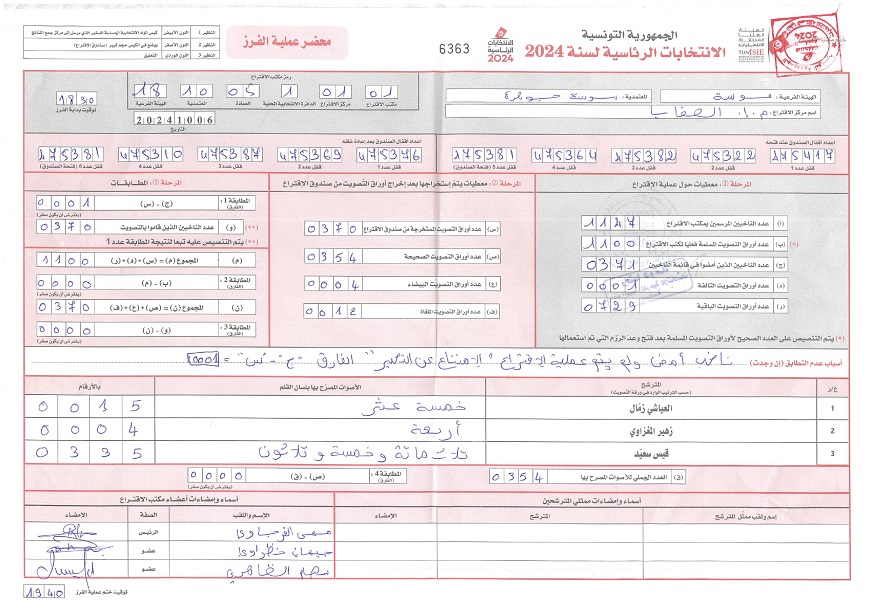 الجمهورية التونسية
الانتخابات الرئاسية لسنة 2024
الانتخابات الرئاسية 2024
6363
محضر عملية الفرز
النظير 1 اللون الأبيض
النظير 2 اللون الأصفر يوضع في الكيس حجم كبير (صندوق الاقتراع)
النظير 3 اللون الوردي التعليق
TUNISIE
الهيئة الفرعية: سوسة المعتمدية: سوسة جوهرة
اسم مركز الاقتراع:
رمز مكتب الاقتراع
18 10 05 01 01 01
الهيئة الفرعية المعتمدية العمادة الدائرة الانتخابية المحلية مركز الاقتراع مكتب الاقتراع
20241006
التاريخ
1830
توقيت بداية الفرز
أعداد أقفال الصندوق عند فتحه
275417 475322 475382 475364 475381
قفل عدد 1 قفل عدد 2 قفل عدد 3 قفل عدد 4 قفل عدد 5 (فتحة الصندوق)
أعداد أقفال الصندوق بعد إعادة غلقه
475376 475369 475387 475310 475381
قفل عدد 1 قفل عدد 2 قفل عدد 3 قفل عدد 4 قفل عدد 5 (فتحة الصندوق)
المرحلة 1: معطيات حول عملية الاقتراع
(أ) عدد الناخبين المرسمين بمكتب الاقتراع 1127
(ب) عدد أوراق التصويت المسلمة فعليا لمكتب الاقتراع 1100 (*)
(ج) عدد الناخبين الذين أمضوا في قائمة الناخبين 0371
(د) عدد أوراق التصويت التالفة 0001
(ر) عدد أوراق التصويت الباقية 0729
(*) يتم التنصيص على العدد الصحيح لأوراق التصويت المسلمة بعد فتح وعد الرزم التي تم استعمالها
المرحلة 2: معطيات يتم إستخراجها بعد إخراج أوراق التصويت من صندوق الاقتراع
(س) عدد أوراق التصويت المستخرجة من صندوق الاقتراع 0370
(ص) عدد أوراق التصويت الصحيحة 0354
(ع) عدد أوراق التصويت البيضاء 0004
(ف) عدد أوراق التصويت الملغاة 0012
المرحلة 3: المطابقات
المطابقة 1: (الفارق) (ج) - (س) 0001
(يفترض أن يكون صفر)
(**) (و) عدد الناخبين الذين قاموا بالتصويت 0370
(**) يتم التنصيص عليه تبعا لنتيجة المطابقة عدد 1
(م) المجموع (م) = (س)+(د)+(ر) 1100
المطابقة 2: (الفارق) (ب) - (م) 0000
(يفترض أن يكون صفر)
(ن) المجموع (ن) = (ص)+(ع)+(ف) 0370
المطابقة 3: (الفارق) (و) - (ن) 0000
(يفترض أن يكون صفر)
أسباب عدم التطابق (إن وجدت) ناخب أمضى ولم يتم عملية الاقتراع "الامتناع عن التصويت" الفارق "ج - س" = 0001
ع/ر المترشح الأصوات المصرح بها بلسان القلم بالأرقام
(حسب الترتيب الوارد في ورقة التصويت)
1 العياشي زمّال خمسة عشر 0015
2 زهير المغزاوي أربعة 0004
3 قيس سعيّد ثلاثمائة وخمسة وثلاثون 0335
(ق) العدد الجملي للأصوات المصرح بها 0354
المطابقة 4: (الفارق) (ص) - (ق) 000
(يفترض أن يكون صفر)
أسماء وإمضاءات ممثلي المترشحين
إسم ولقب ممثل المترشح المترشح الإمضاء
أسماء وإمضاءات أعضاء مكتب الاقتراع
الإسم واللقب الصفة الإمضاء
الرئيس
عضو
عضو
توقيت ختم عملية الفرز 1940